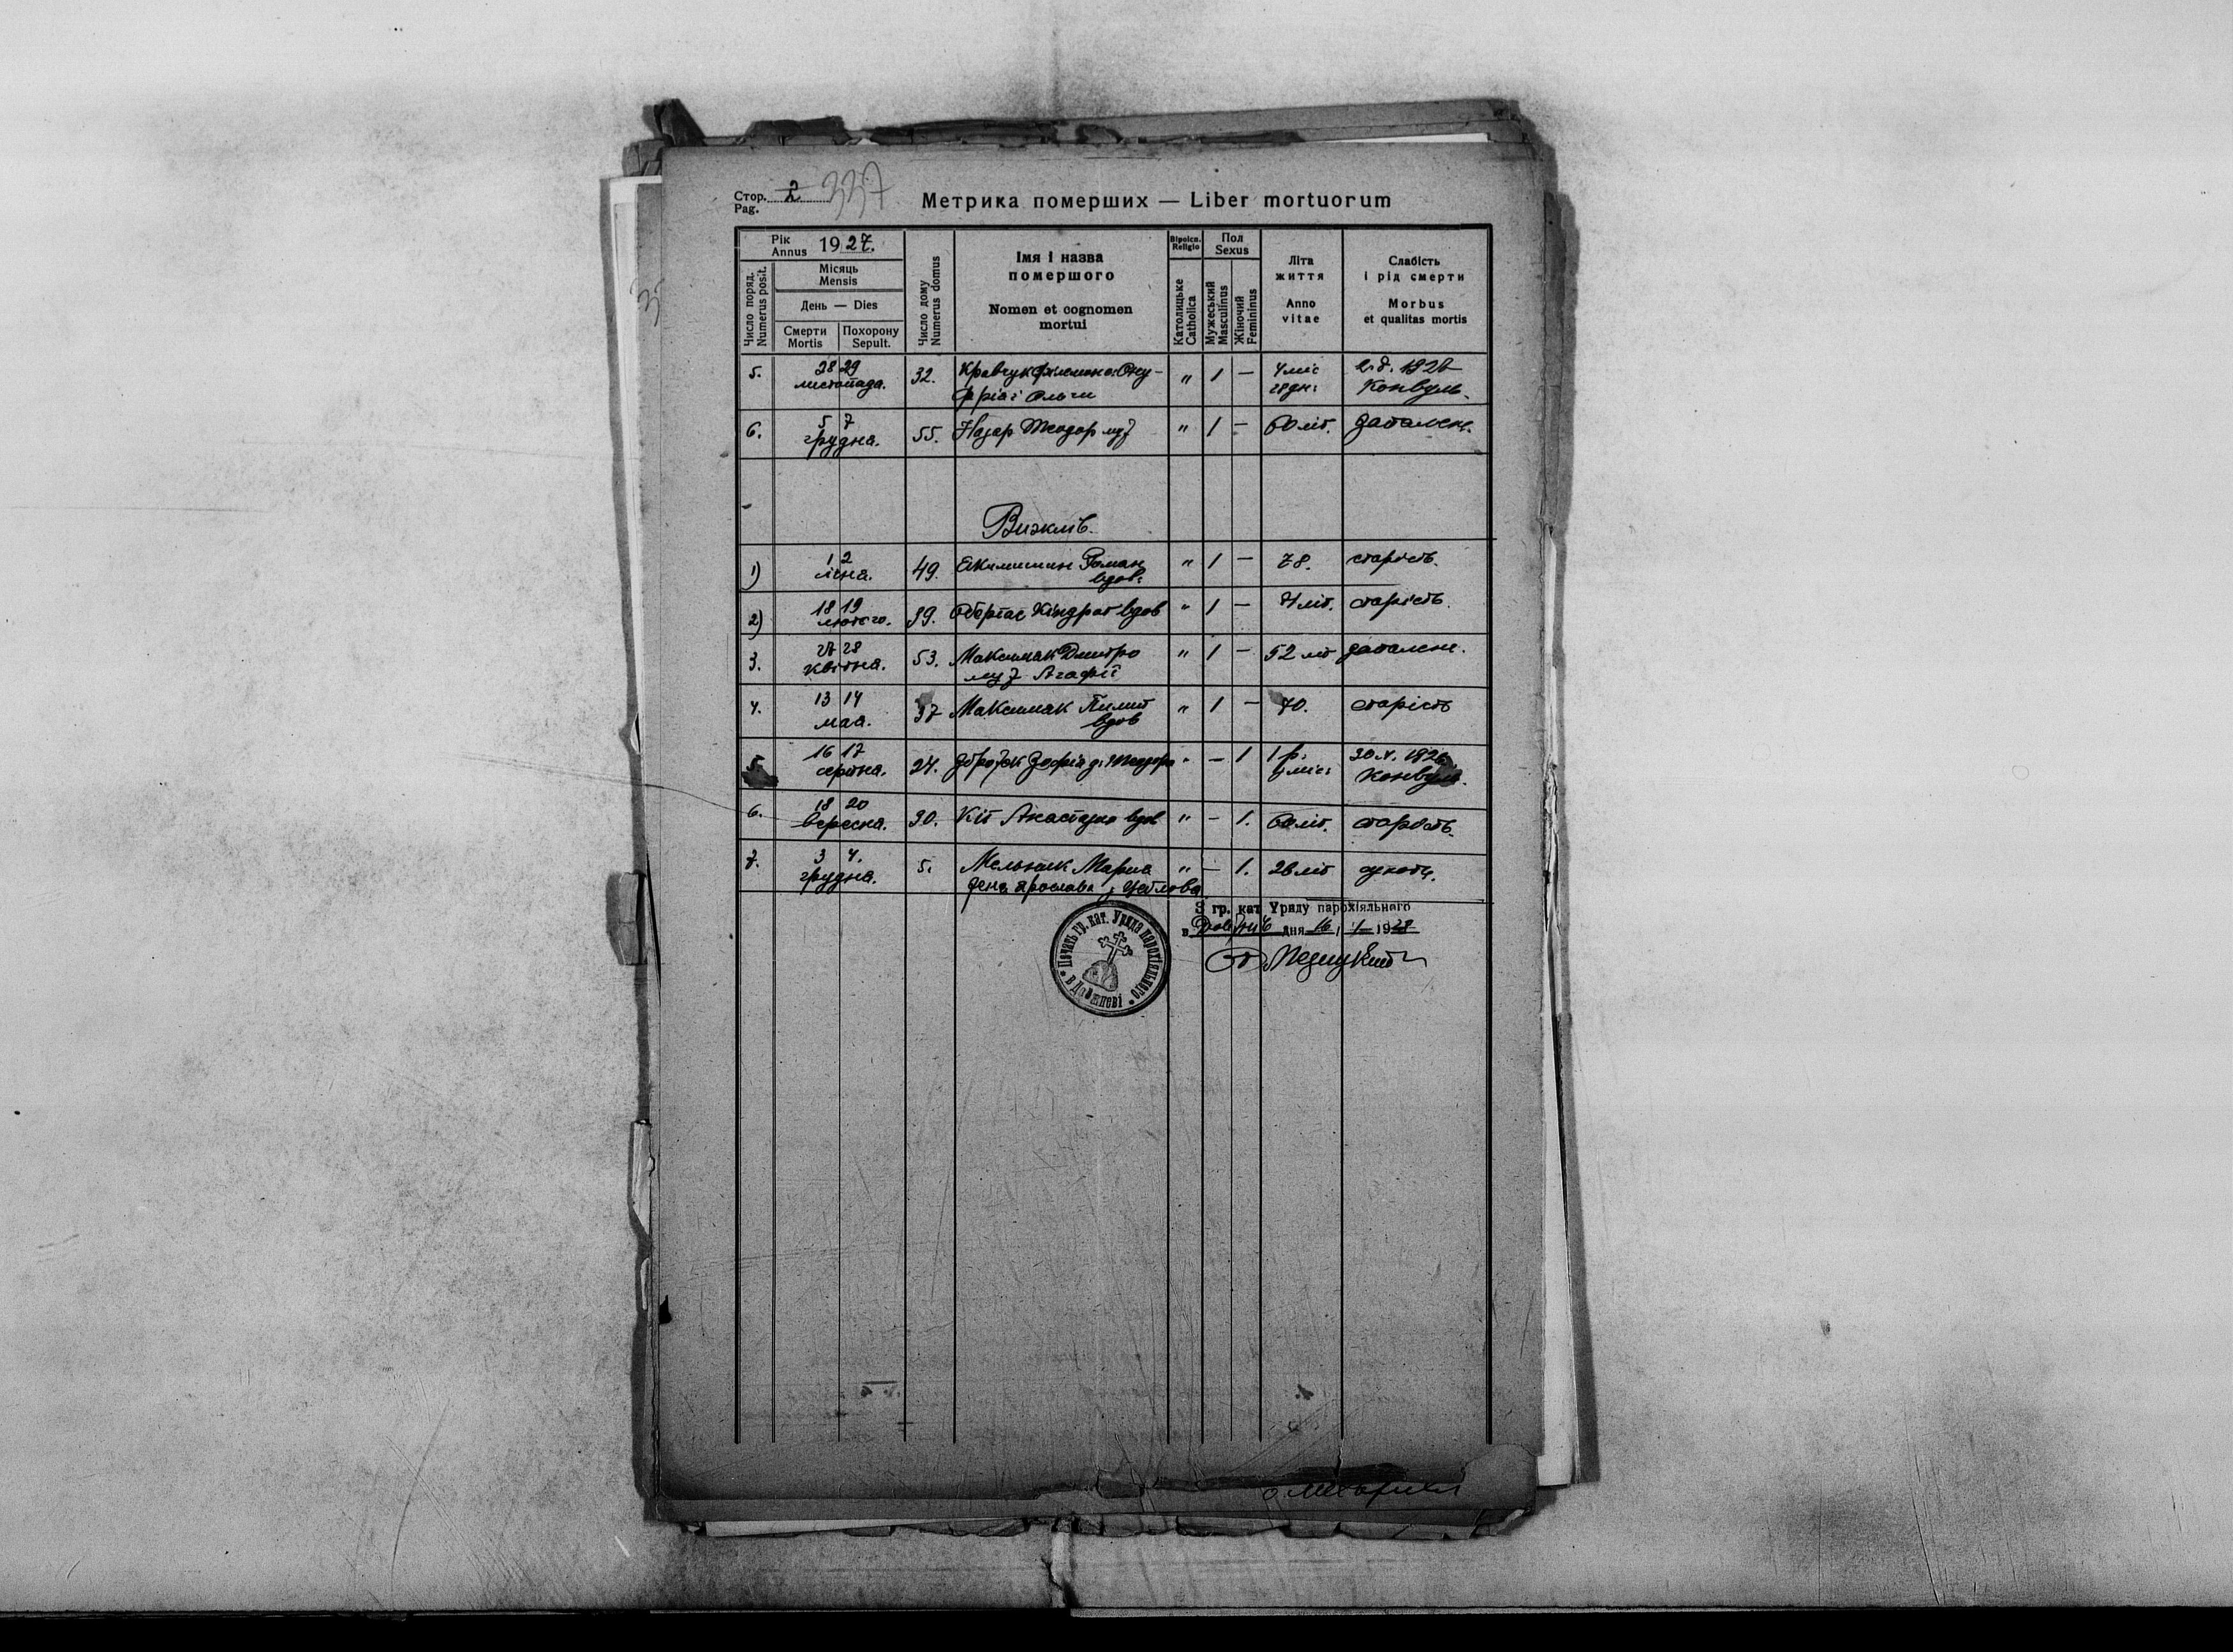 Стор. 2 337
Pag.
Метрика померших — Liber mortuorum
Рік
Annus 1927.
Число поряд.
Numerus posit.
Місяць
Mensis
День — Dies
Смерти
Mortis
Похорону
Sepult.
Число дому
Numerus domus
Імя і назва
помершого
Nomen et cognomen
mortui
Віроісп.
Religio
Католицьке
Catholica
Пол
Sexus
Мужеський
Masculinus
Жіночий
Femininus
Літа
життя
Anno
vitae
Слабість
і рід смерти
Morbus
et qualitas mortis
5. 28 29 листопада. 32. Кравчук Ону-
фрія і Ольги " 1 — 4 міс 1927 Конвуль.
6. 5 7 грудня. 55. Назар Теодор " 1 — 60 літ. запалене.
Вижлів.
1) 1 2 січня. 49. Роман
вдов. " 1 — 78. старість.
2) 18 19 лютого. 39. Кіндрат вдов " 1 — 71 літ. старість.
3. 27 28 квітня. 53. Максимак Дмитро
муз Агафії " 1 — 52 літ запалене.
4. 13 14 мая. 37 Максимак Пилип
вдов " 1 — 70. старість
5. 16 17 серпня. 24. Зофія д. Теодора " — 1 1 р.
4 міс. 30. V. 1926. Конвул.
6. 18 20 вересня. 30. Кіт Анастазия вдов " — 1. 60 літ. старість.
7. 3 4. грудня. 5. Мельник Мария " — 1. 26 літ сухоти.
жена Ярослава з
З гр. кат Уряду парохіяльного
в дня 16/1 1928
Печать гр. кат. Уряда парохіяльного